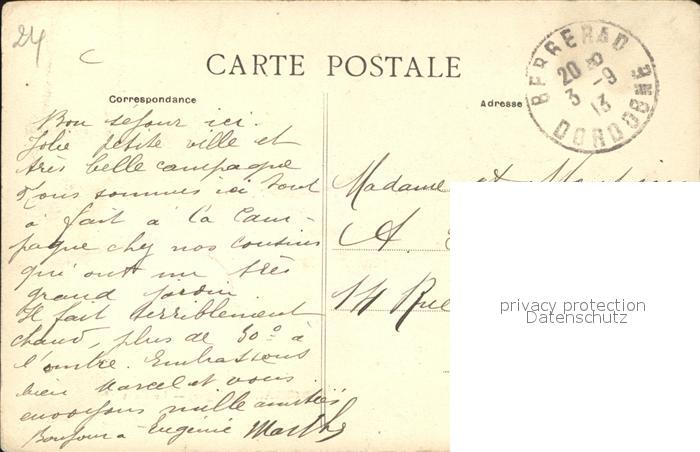 24
CARTE POSTALE
BERGERAC
20 8
3 -9
13
DORDOGNE
Correspondance
Adresse
Bon séjour ici.
Jolie petite ville et
très belle campagne
Nous sommes ici tout
à fait à la cam-
pagne chez nos cousins
qui ont un très
grand jardin
Il fait terriblement
chaud, plus de 30° à
l'ombre. Embrassons
bien Marcel et vous
envoyons mille amitiés
Bonjour a Eugénie Marthe
Madame et
A.
14 Rue
privacy protection
Datenschutz